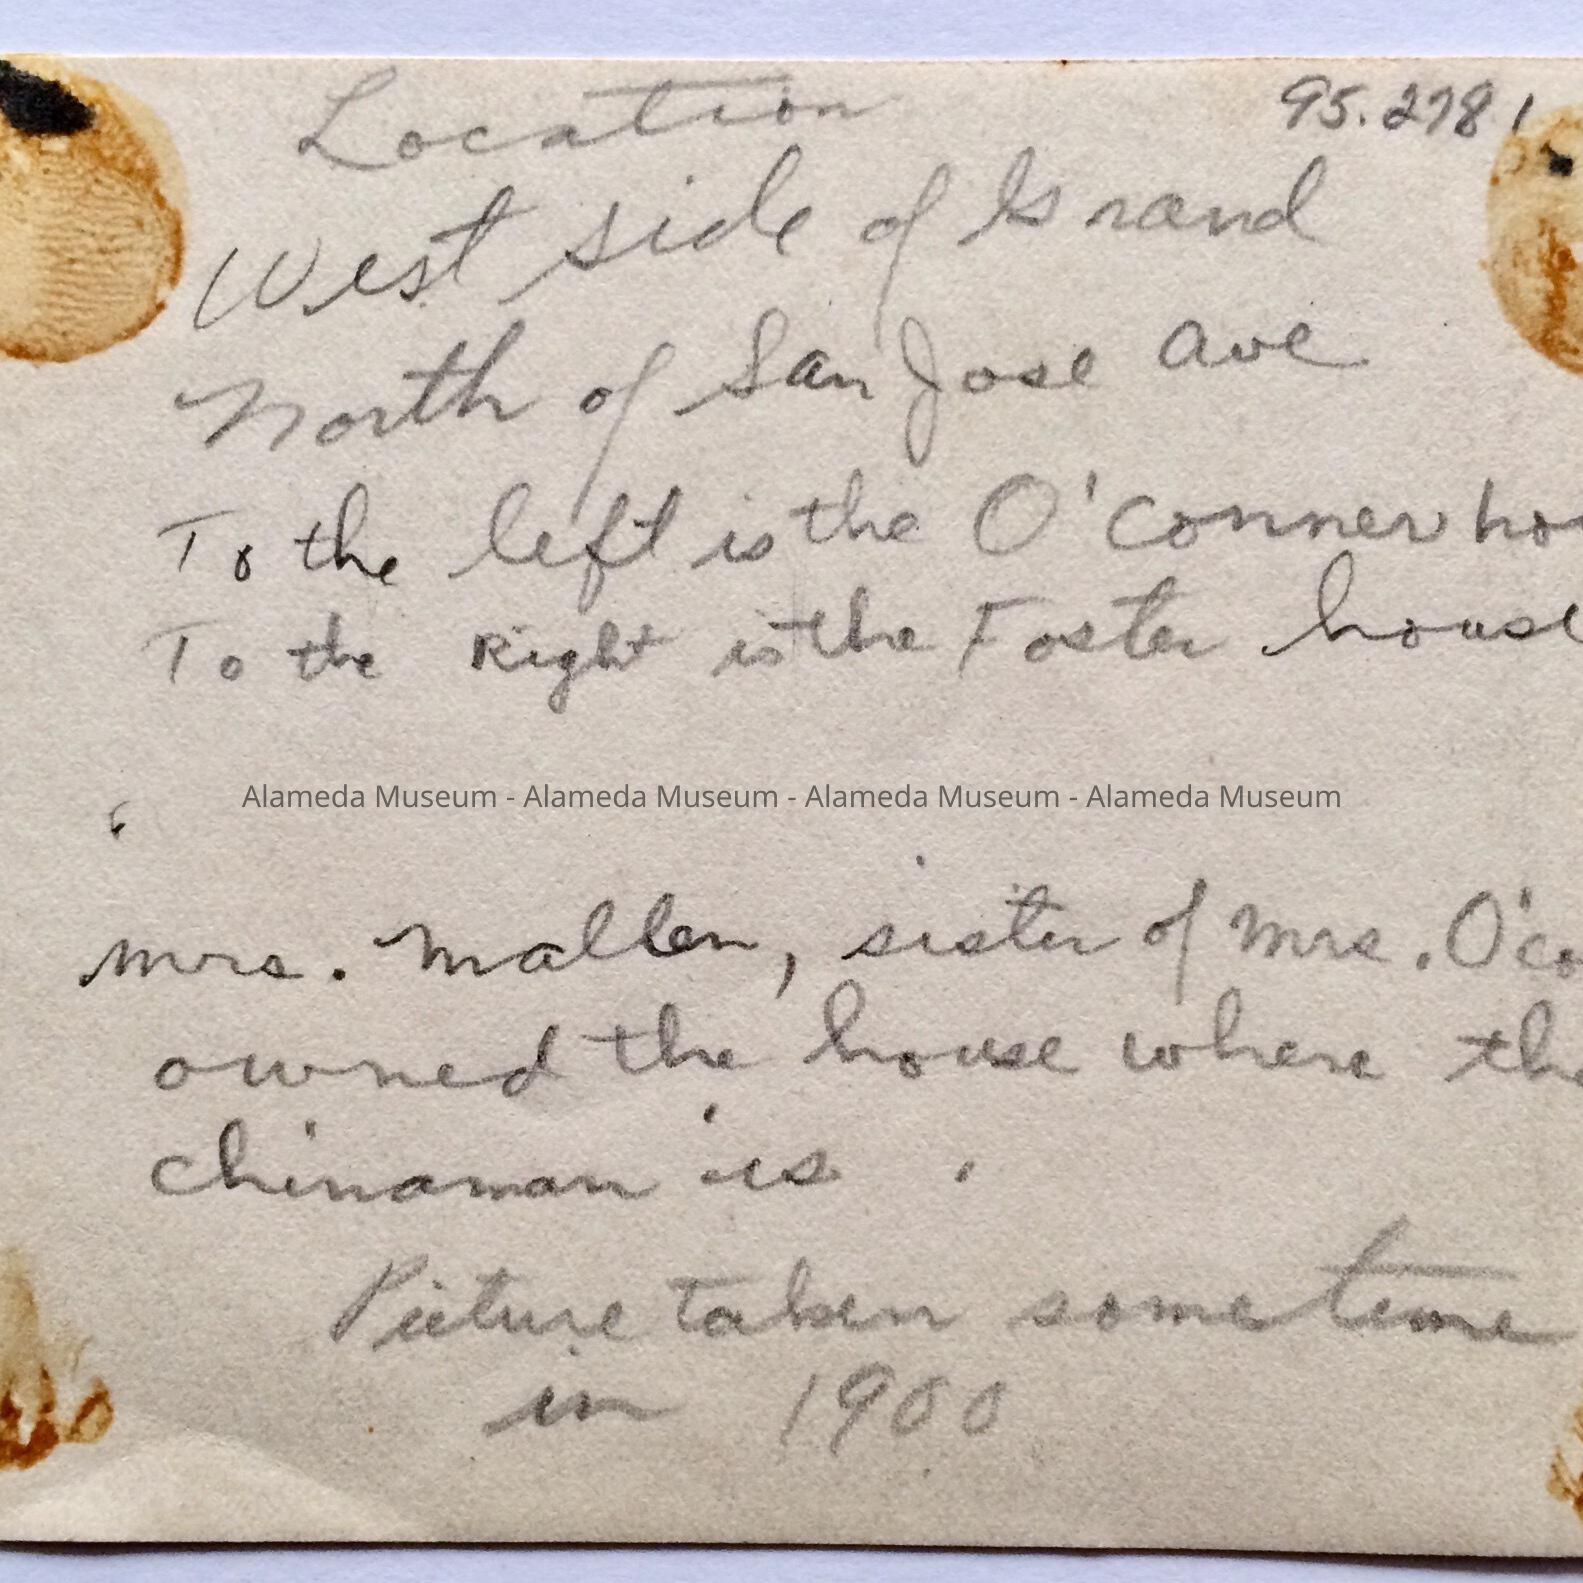 Location
95.2781
West side of Grand
North of San Jose Ave
To the left is the O'Conner hou
To the Right is the Foster house
Alameda Museum - Alameda Museum - Alameda Museum - Alameda Museum
Mrs. Mallen, sister of Mrs. O'co
owned the house where the
chinaman is .
Picture taken sometime
in 1900